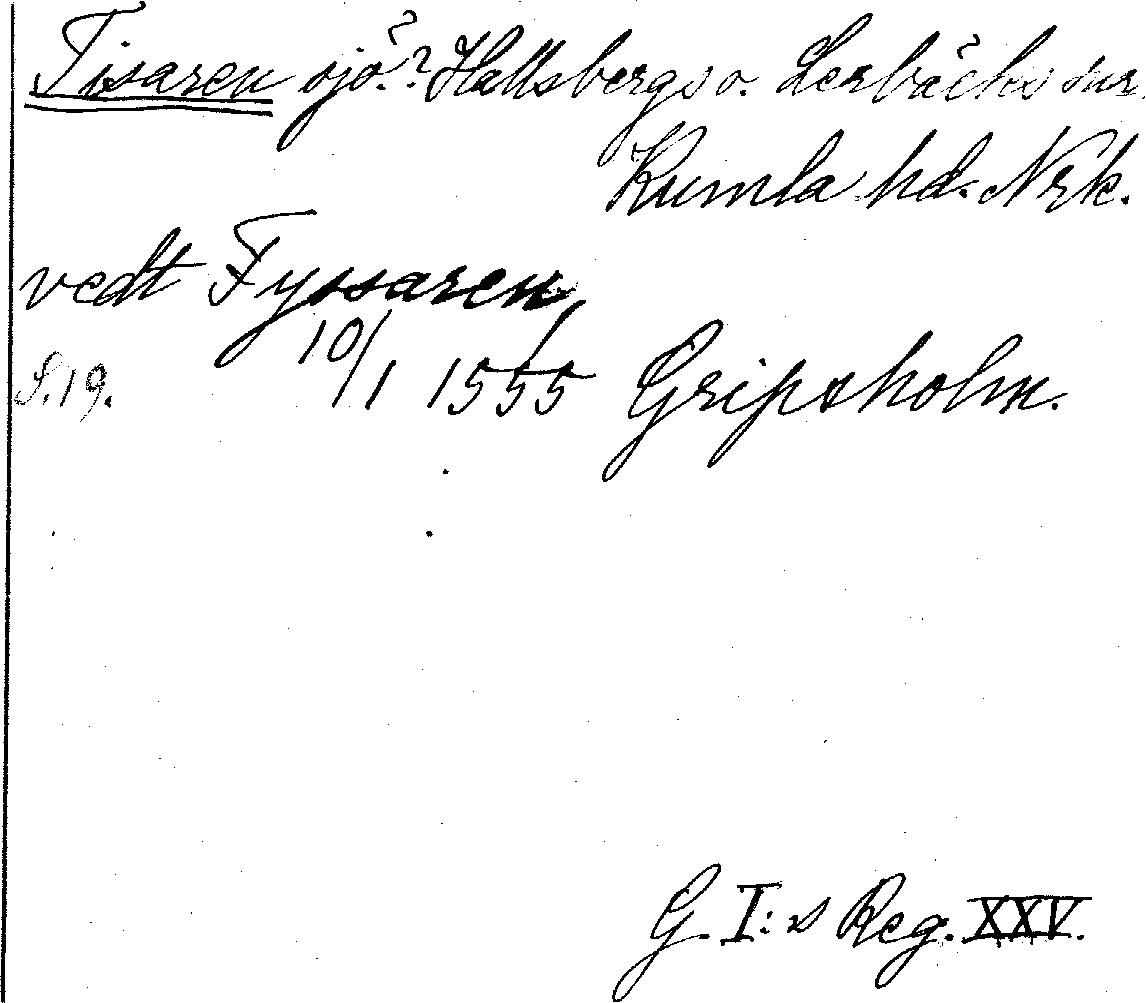 Tisaren sjö? Hallsbergs o. Lerbäcks snr
Kumla hd. Nrk.
vedt Tyssaren
S. 19. 10/1 1555 Gripsholm.
G. I:s Reg. XXV.